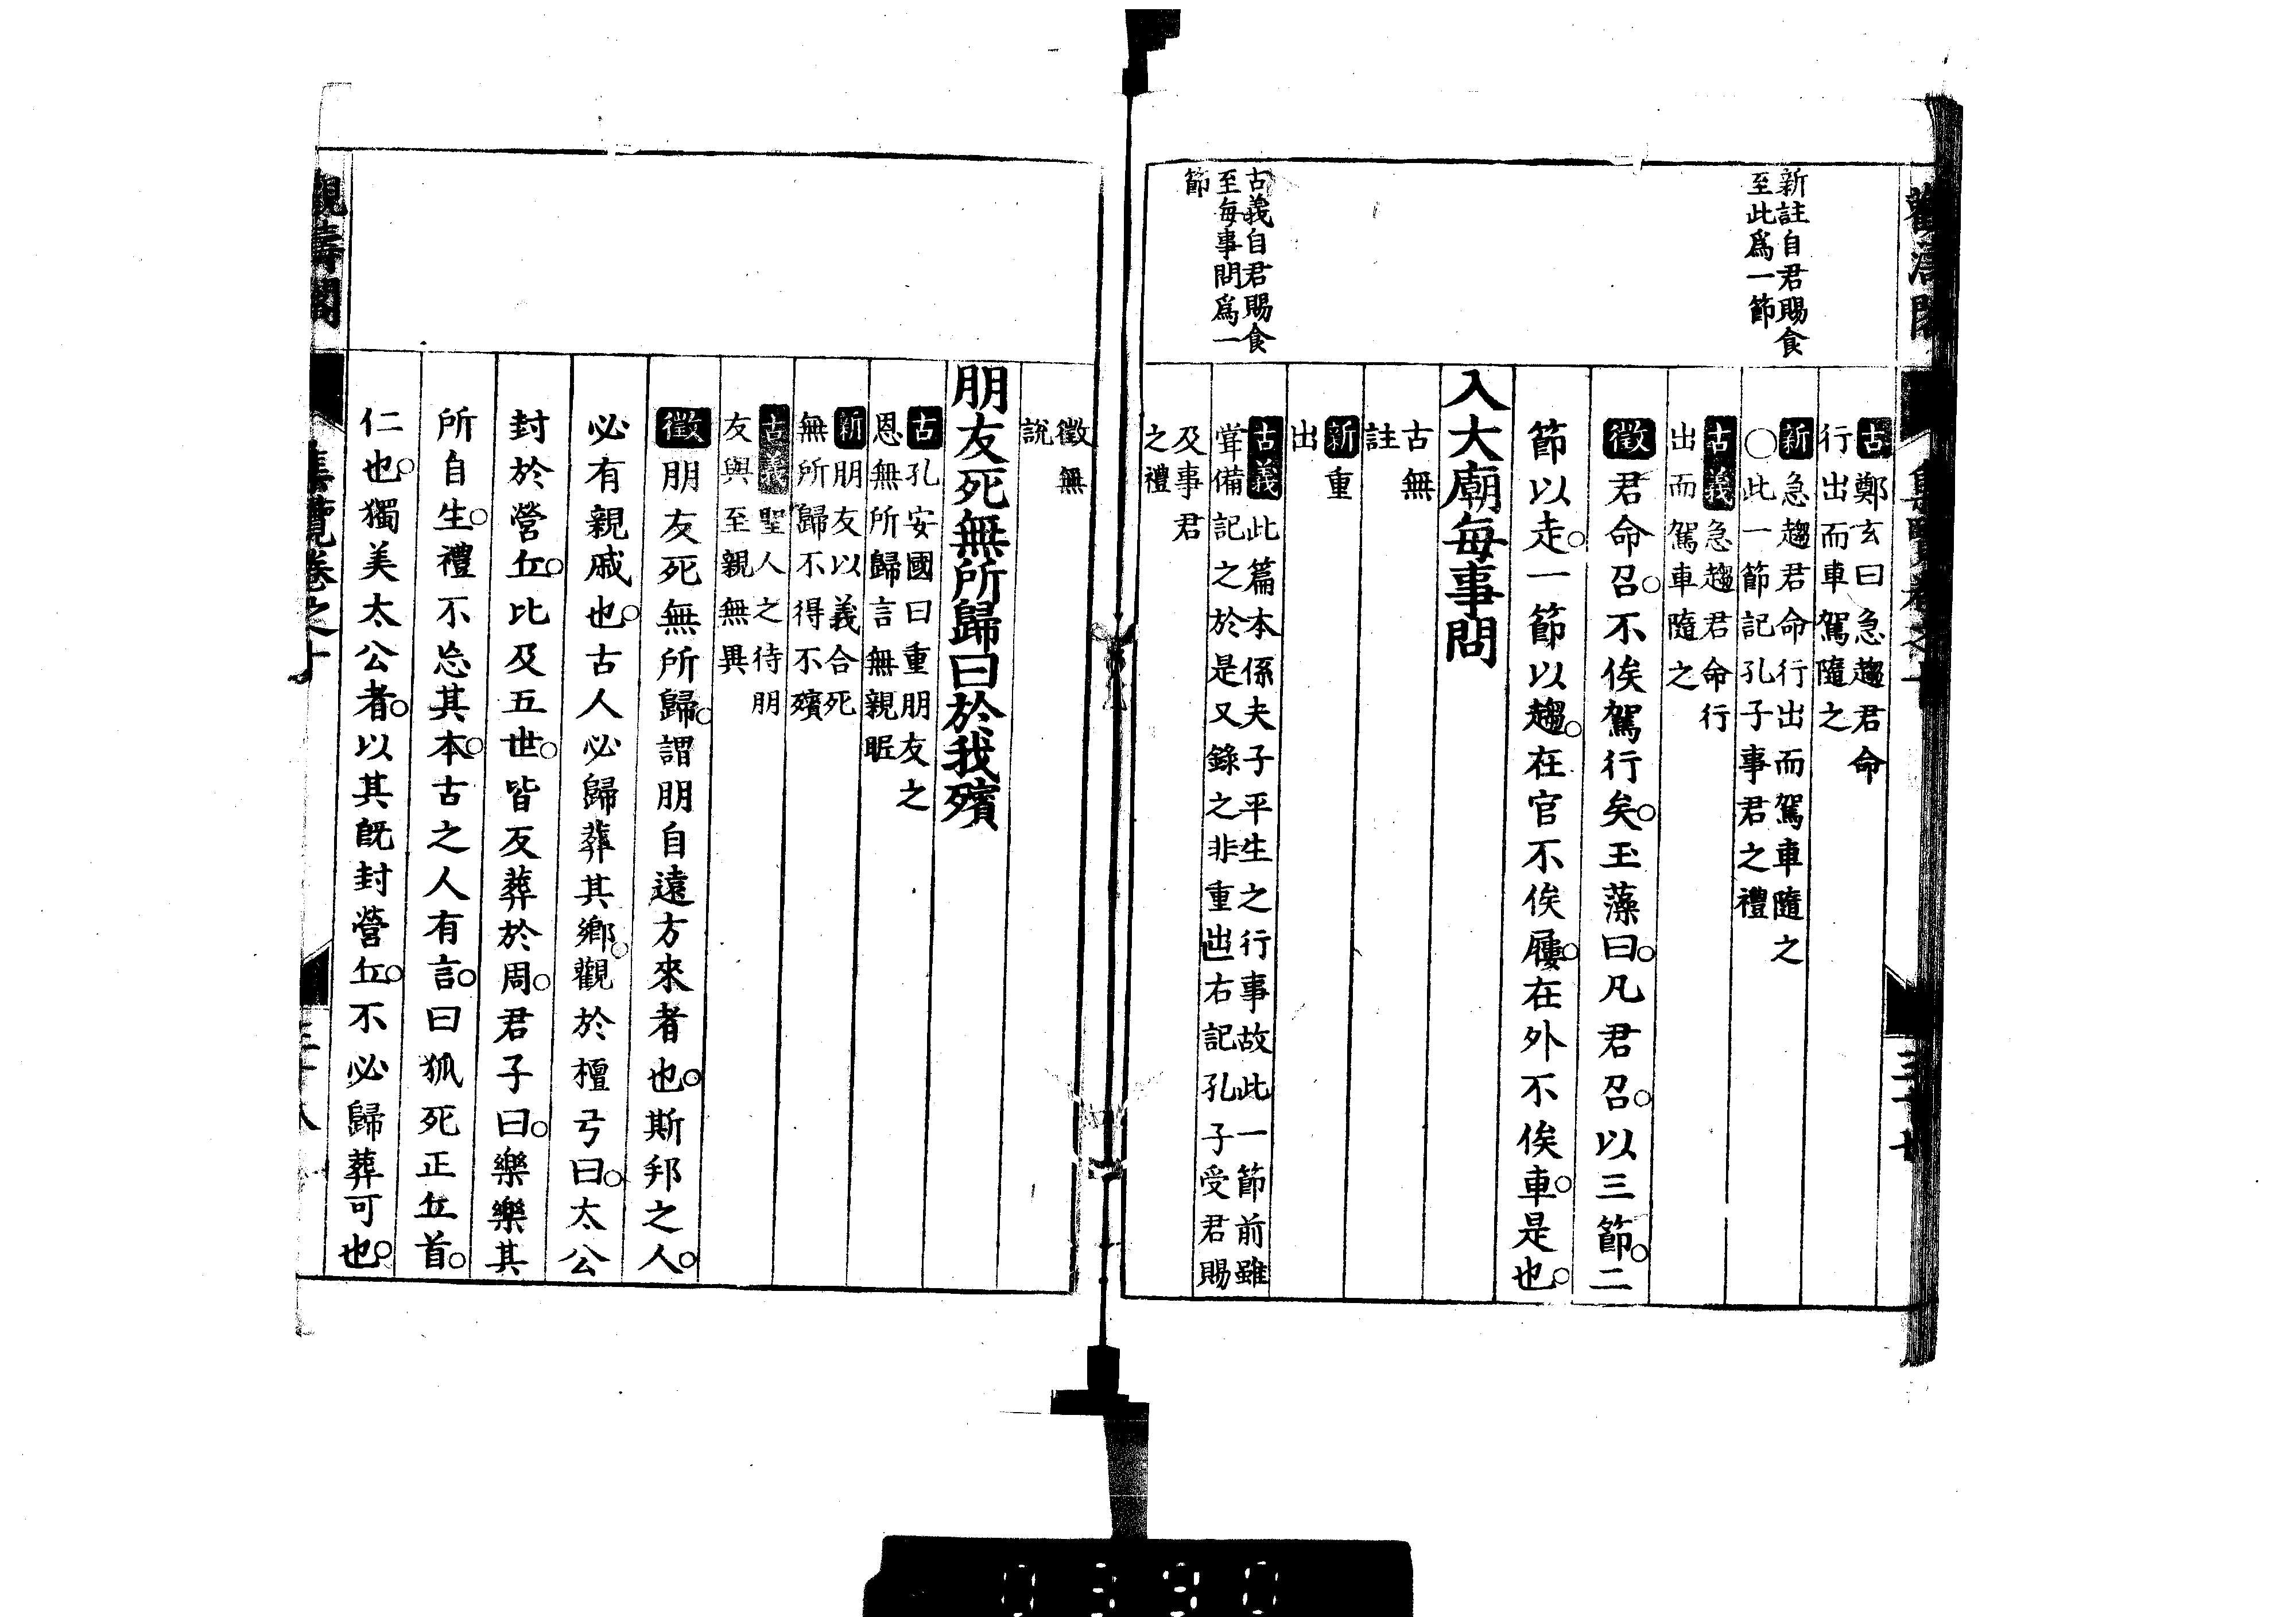 新註自君賜食
至此爲一節
古義自君賜食
至每事問爲一
節
古鄭玄曰急趨君命
行出而車駕隨之
新急趨君命行出而駕車隨之
○此一節記孔子事君之禮
古義急趨君命行
出而駕車隨之
徵君命召。不俟駕行矣。玉藻曰。凡君召。以三節。二
節以走。一節以趨。在官不俟屨。在外不俟車。是也。
入大廟每事問
古無
註
新重
出
古義此篇本係夫子平生之行事故此一節前雖
甞備記之於是又錄之非重出右記孔子受君賜
及事君
之禮
徵無
說
朋友死無所歸曰於我殯
古孔安國曰重朋友之
恩無所歸言無親昵
新朋友以義合死
無所歸不得不殯
古義聖人之待朋
友與至親無異
徵朋友死無所歸。謂朋自遠方來者也。斯邦之人。
必有親戚也。古人必歸葬其鄉。觀於檀弓曰。太公
封於營丘。比及五世。皆反葬於周。君子曰。樂樂其
所自生。禮不忘其本。古之人有言。曰狐死正丘首。
仁也。獨美太公者。以其旣封營丘。不必歸葬可也。
集覽卷之十